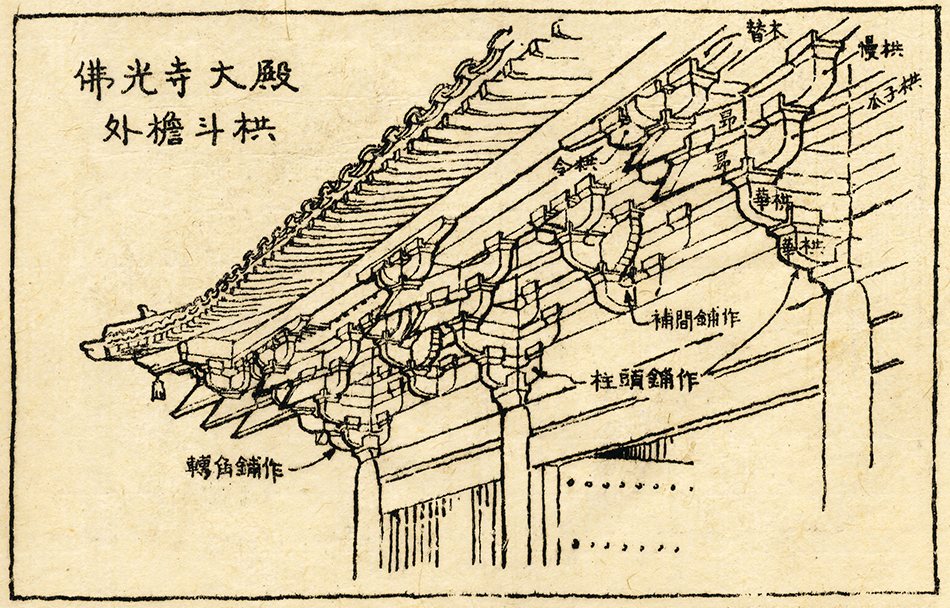 佛光寺大殿
外檐斗栱
替木
慢栱
瓜子栱
昂
昂
令栱
華栱
華栱
補間鋪作
柱頭鋪作
轉角鋪作